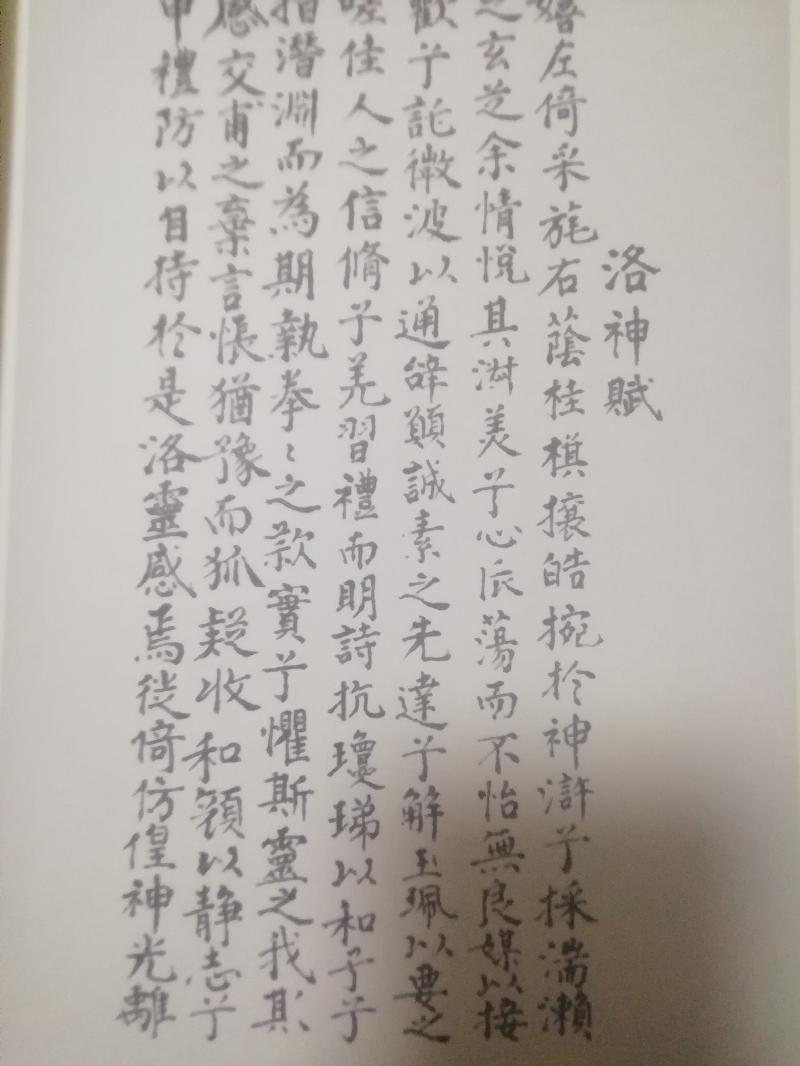 洛神賦
嬉左倚采旄右蔭桂棋攘皓捥於神滸兮採湍瀨
之玄芝余情悅其淑美兮心振蕩而不怡無良媒以接
歡兮託微波以通辭願誠素之先達兮解玉珮以要之
嗟佳人之信脩兮羌習禮而明詩抗瓊珶以和予兮
指潛淵而為期執拳〻之款實兮懼斯靈之我欺
感交甫之棄言悵猶豫而狐疑收和顏以静志兮
申禮防以自持於是洛靈感焉徙倚仿偟神光離